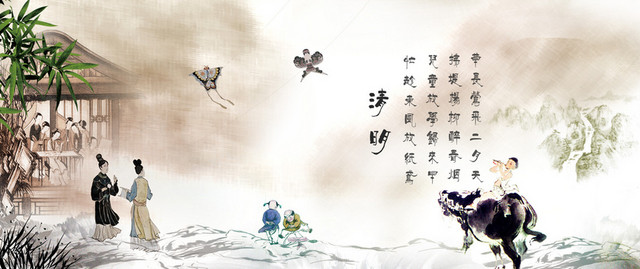 草長鶯飛二月天
拂堤楊柳醉春烟
兒童放學歸來早
忙趁東風放紙鳶
清明